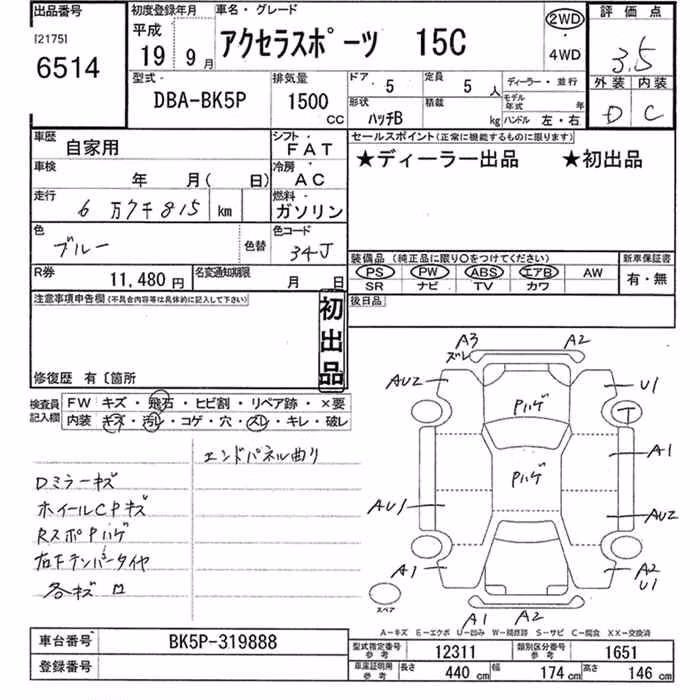 出品番号 初度登録年月 車名・グレード 2WD 評価点
[2175] 平成
6514 19 9月 アクセラスポーツ 15C 4WD 3.5
型式 排気量 ドア 5 定員 5 人 ディーラー・並行 外装 内装
DBA-BK5P 1500 CC 形状 ハッチB 積載 kg モデル年式 年 ハンドル 左・右 D C
車歴 自家用 シフト FAT セールスポイント(正常に機能するものに限ります)
車検 年 月( 日) 冷房 AC ★ディーラー出品 ★初出品
走行 6万7千815 km 燃料 ガソリン
色 ブルー 色替 色コード 34J
装備品(純正品に限り○をつけてください) 新車保証書
R券 11,480円 名変通知期限 月 日 PS PW ABS エアB AW 有・無
SR ナビ TV カワ
注意事項申告欄(不具合内容等は具体的に記入して下さい) 初出品 後日品
修復歴 有〔箇所
検査員記入欄 FW キズ・飛石・ヒビ割・リペア跡・×要
内装 キズ・汚レ・コゲ・穴・スレ・キレ・破レ
エンドパネル曲り
Dミラーキズ
ホイールCPキズ
RスポPハゲ
右Fテンパータイヤ
各キズ
A3 A2
ズレ
AU2 U1
Pハゲ
T
A1
Pハゲ
AU1 AU2
A1 A2
U1
スペア
A1 A2
A-キズ E-エクボ U-凹み W-補修跡 S-サビ C-腐食 XX-交換済
車台番号 BK5P-319888 型式指定番号 参考 12311 類別区分番号 参考 1651
登録番号 車庫証明用 参考 長さ 440 cm 幅 174 cm 高さ 146 cm